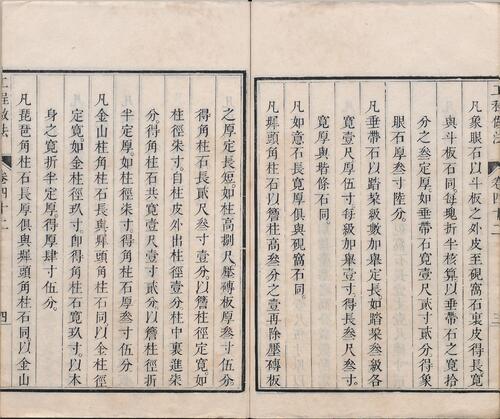 工程做法 卷四十二 三
凡象眼石以斗板之外皮至二石裏皮得長寬
與斗板石同每塊折半核算以垂帶石之寬拾
分之叁定厚如垂帶石寬壹尺貳寸貳分得象
眼石厚叁寸陸分
凡垂帶石以踏朶級數加舉定長如踏朶叁級各
寬壹尺厚伍寸每級加舉壹寸得長叁尺叁寸
寬厚與堦條石同
凡如意石長寬厚俱與硯窩石同
凡墀頭角柱石以簷柱高叁分之壹再除壓磚板
之厚定長短如柱高捌尺壓磚板厚叁寸伍分
得角柱石長貳尺叁寸壹分以簷柱徑定寬如
柱徑柒寸自柱皮外出柱徑壹分柱中裏進柒
分得角柱石共寬壹尺壹寸貳分以簷柱徑折
半定厚如柱徑柒寸得角柱石厚叁寸伍分
凡金山柱角柱石長與墀頭角柱石同以金柱徑
定寬如金柱徑玖寸即得角柱石寬玖寸以本
身之寬折半定厚得厚肆寸伍分
凡琵琶角柱石長厚俱與墀頭角柱石同以金山
工程做法 卷四十二 四